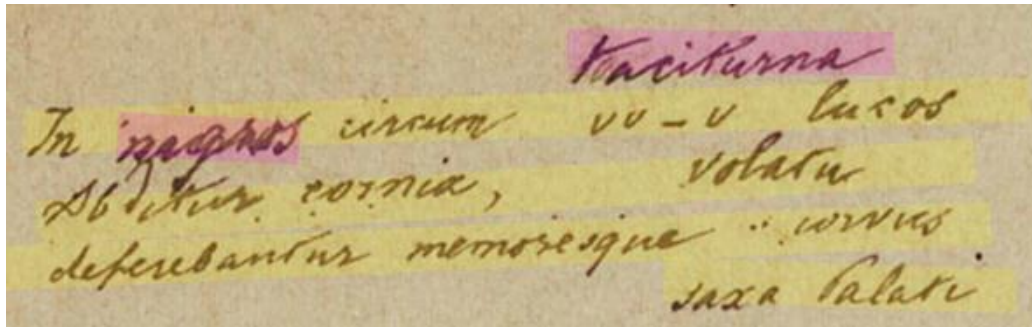 taciturna
In nigros circum vv-v lucos
Abditur cornix, volatu
deferebantur memoresque corvus
saxa Palati